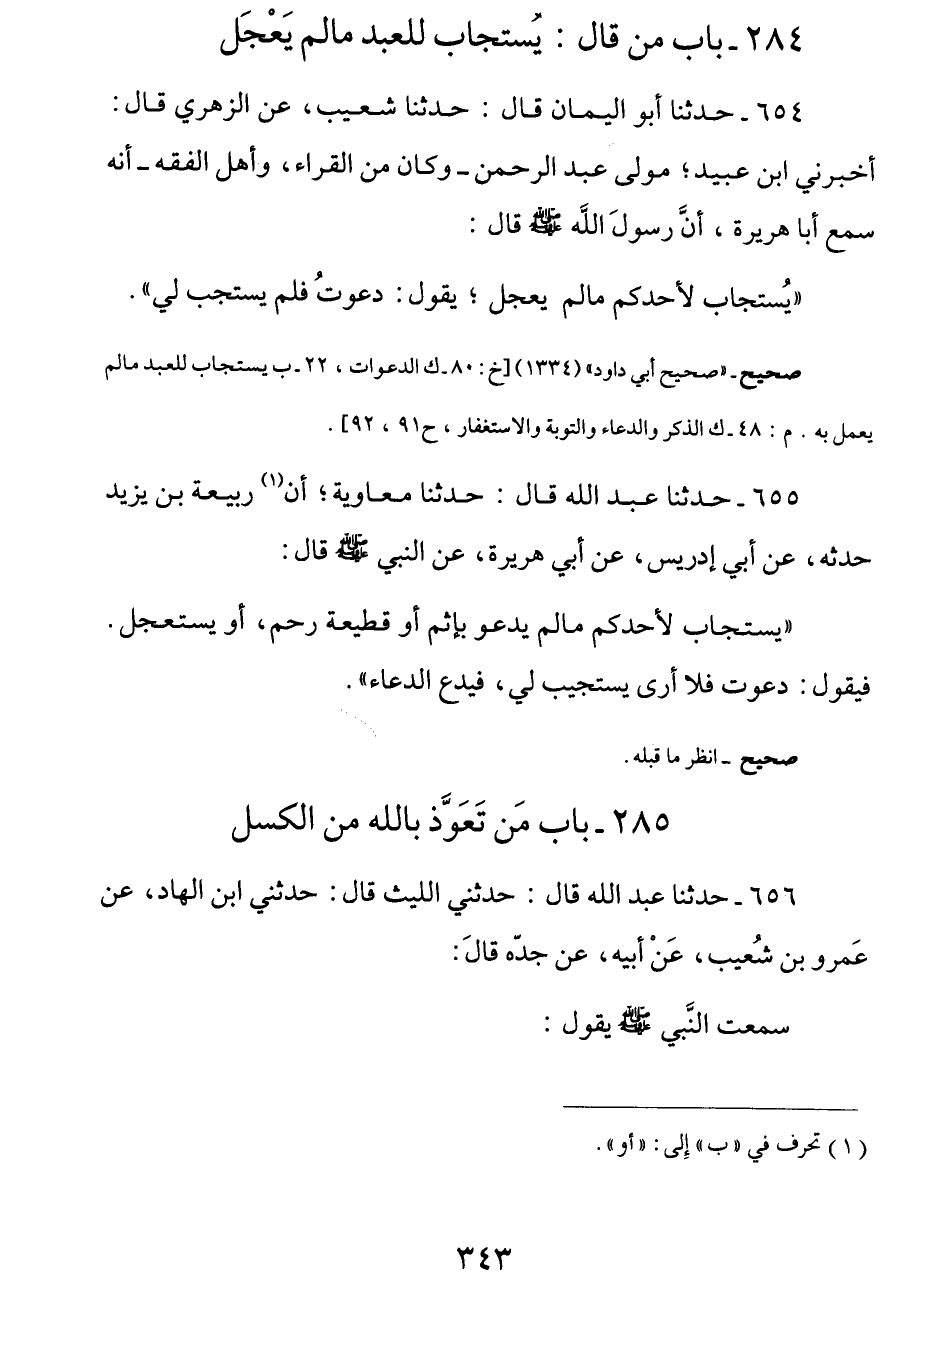 ٢٨٤ ـ باب من قال : يُستجاب للعبد مالم يَعْجَل
٦٥٤ ـ حدثنا أبو اليمان قال : حدثنا شعيب، عن الزهري قال:
أخبرني ابن عبيد؛ مولى عبد الرحمن ـ وكان من القراء، وأهل الفقه ـ أنه
سمع أبا هريرة ، أنَّ رسولَ اللَّه ﷺ قال :
«يُستجاب لأحدكم مالم يعجل ؛ يقول: دعوتُ فلم يستجب لي».
صحيح ـ «صحيح أبي داود» (١٣٣٤) [خ: ٨٠ ـ ك الدعوات ، ٢٢ ـ ب يستجاب للعبد مالم
يعمل به . م : ٤٨ ـ ك الذكر والدعاء والتوبة والاستغفار ، ح ٩١ ، ٩٢] .
٦٥٥ ـ حدثنا عبد الله قال : حدثنا معاوية؛ أن(١) ربيعة بن يزيد
حدثه، عن أبي إدريس، عن أبي هريرة، عن النبي ﷺ قال:
«يستجاب لأحدكم مالم يدعو بإثم أو قطيعة رحم، أو يستعجل.
فيقول: دعوت فلا أرى يستجيب لي، فيدع الدعاء».
صحيح ـ انظر ما قبله.
٢٨٥ ـ باب مَن تَعَوَّذ بالله من الكسل
٦٥٦ ـ حدثنا عبد الله قال : حدثني الليث قال: حدثني ابن الهاد، عن
عَمرو بن شُعيب، عَنْ أبيه، عن جدّه قالَ:
سمعت النَّبي ﷺ يقول :
(١) تحرف في «ب» إلى: «أو».
٣٤٣